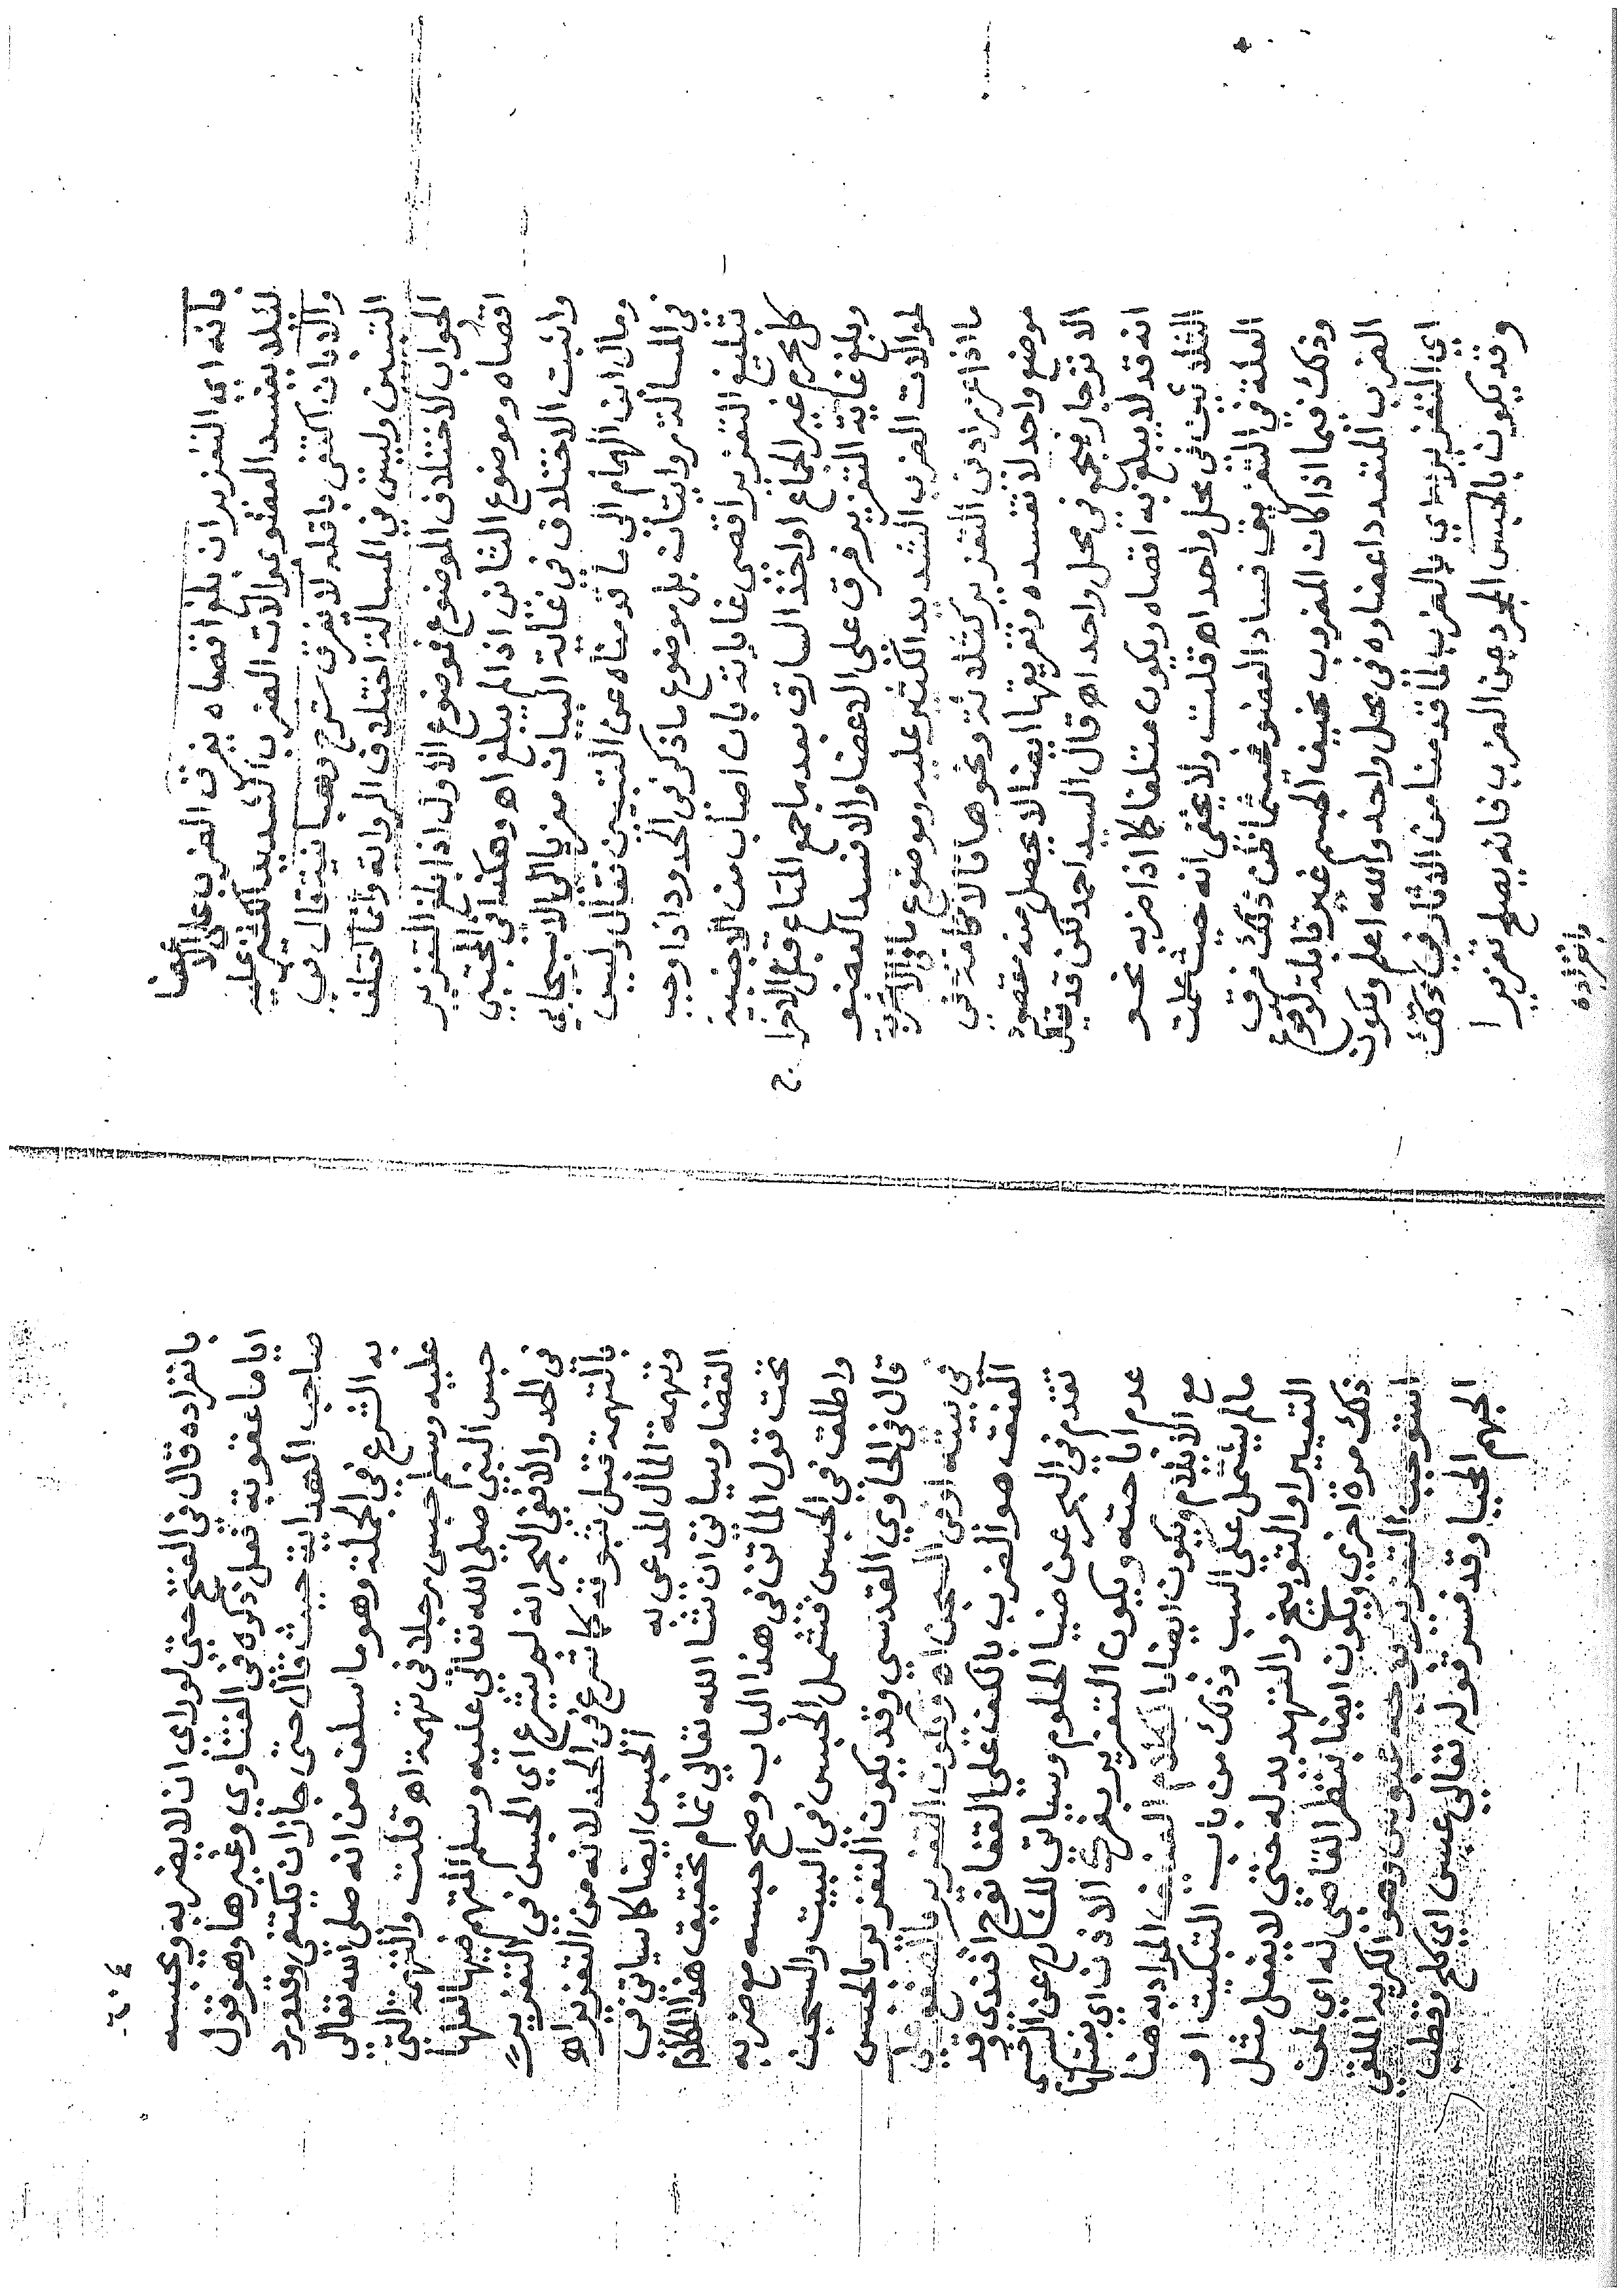 بانه اي التعزير ان بلغ اقصاه يفرق الضرب على الاعضا
لئلا يفسد العضو بموالات الضرب الشديد الكثير عليه
والا بان اكتفي باقله لا يفرق شرح وهبانية قال في
التبيين وليس في المسالة اختلاف الرواية وانما اختلف
الجواب لاختلاف الموضوع فموضوع الاول اذا بلغ التعزير
اقصاه وموضوع الثاني اذا لم يبلغ اه وهكذا في المجتبي
واثبت الاختلاف في غاية البيان معزيا الي الاسبيجابي
ومال ابن الهمام الى ما قدمناه عن التبيين فقال وليس
في المسالة روايتان بل موضوع ما ذكر في الحدود اذا وجب
تبليغ التعزير اقصى غاياته بان اصاب من الاجنبية
كل محرم غير الجماع او اخذ السارق بعد ما جمع المتاع قبل الاخراج
وبلغ غاية التعزير فرق على الاعضا والا فسد العضو
لموالات الضرب الشديد الكثير عليه وموضوع ما في الاشربة
ما اذا عزر ادنى التعزير كثلاثة ونحوها فالاقامة في
موضع واحد لا تفسده وتفريقها ايضا لا يحصل منه مقصود
الانزجار فيجمع في محل واحد اه قال السيد احمد لكن قد يقال
انه قد لا يبلغ به اقصاه ويكون متلفا كما اذا ضربه نحو
الثلاثين في محل واحد اه قلت ولا يخفى انه حيث علمت
العلة في التفريق فساد العضو فحيثما ظن ذلك فرق
وذلك فيما اذا كان المضروب نحيف الجسم غير قابلة لوقوع
الضرب المتعدد اعضاوه في محل واحد والله اعلم ويكون
اي التعزير به اي بالضرب لما قدمنا من الاثار في ذلك
وقد يكون بالحبس المجرد عن الضرب فانه يصلح تعزيرا
بانفراده
٢٠٤
بانفراده قال في الفتح حتى لو راى ان لا يضربه ويحبسه
اياما عقوبة فعل ذكره في الفتاوي وغيرها وهو قول
صاحب الهداية حيث قال حتى جاز ان يكتفي به وورد
به الشرع في الجملة وهو ما سلف من انه صلى الله تعالى
عليه وسلم حبس رجلا في تهمة اه قلت والتهمة التي
حبس النبي صلى الله تعالى عليه وسلم المتهم فيها الفقها
في الحد والا ففي البحر انه لم يشرع اي الحبس في التعزير
بالتهمة قبل ثبوته كما شرع في الحد لانه من التعزير اه
وتهمة المال المدعى به الحبس ايضا كما سياتي في
القضا وسياتي ان شا الله تعالي تمام تحقيق هذا الكلام
تحت قول الماتن في هذا الباب وصح حبسه مع ضربه
واطلق في الحبس فشمل الحبس في البيت والسجن
قال في الحاوي القدسي وقد يكون التعزير بالحبس
في بيته او في السجن اه ويكون التعزير بالصفع على
العنق هو الضرب بالكف على القفا نوح افندي وقد
تقدم في البحر عن ضيا الحلوم وسياتي للشارح عن السرخسي
عدم اباحته ويكون التعزير بفرك الاذن اي بفتلها
مع الايلام ويكون ايضا بالكلام العنيف المراد به هنا
مالم يشمل على السب وذلك من باب التبكيت او
التعيير او التوبيخ والتهديد له حتى لا يفعل مثل
ذلك مرة اخري ويكون ايضا بنظر القاضي له اي لمن
استوجب التعزير بوجه عبوس وهو الكريه الملقي
الجهم المحيا وقد فسر قوله تعالى عبس اي كلح وقطب